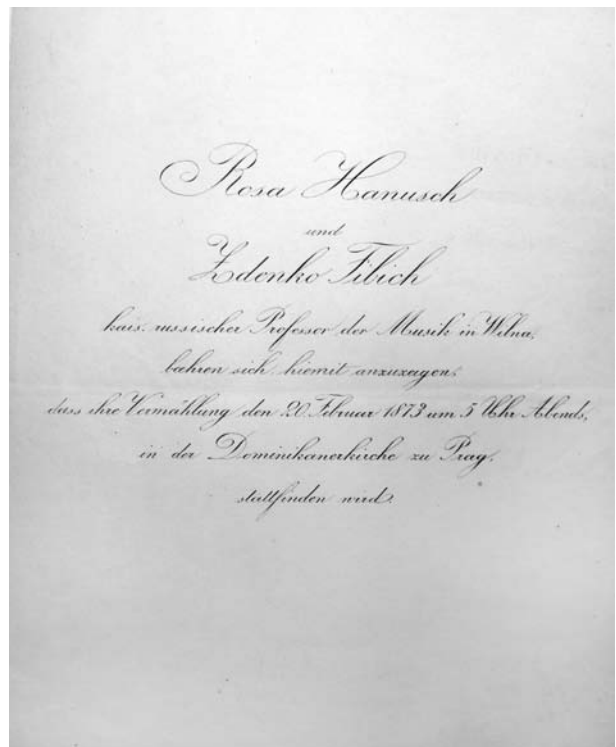 Rosa Hanusch
und
Zdenko Fibich
kais. russischer Professor der Musik in Wilna,
beehren sich hiemit anzuzeigen,
dass ihre Vermählung den 20. Februar 1873 um 5 Uhr Abends,
in der Dominikanerkirche zu Prag,
stattfinden wird.